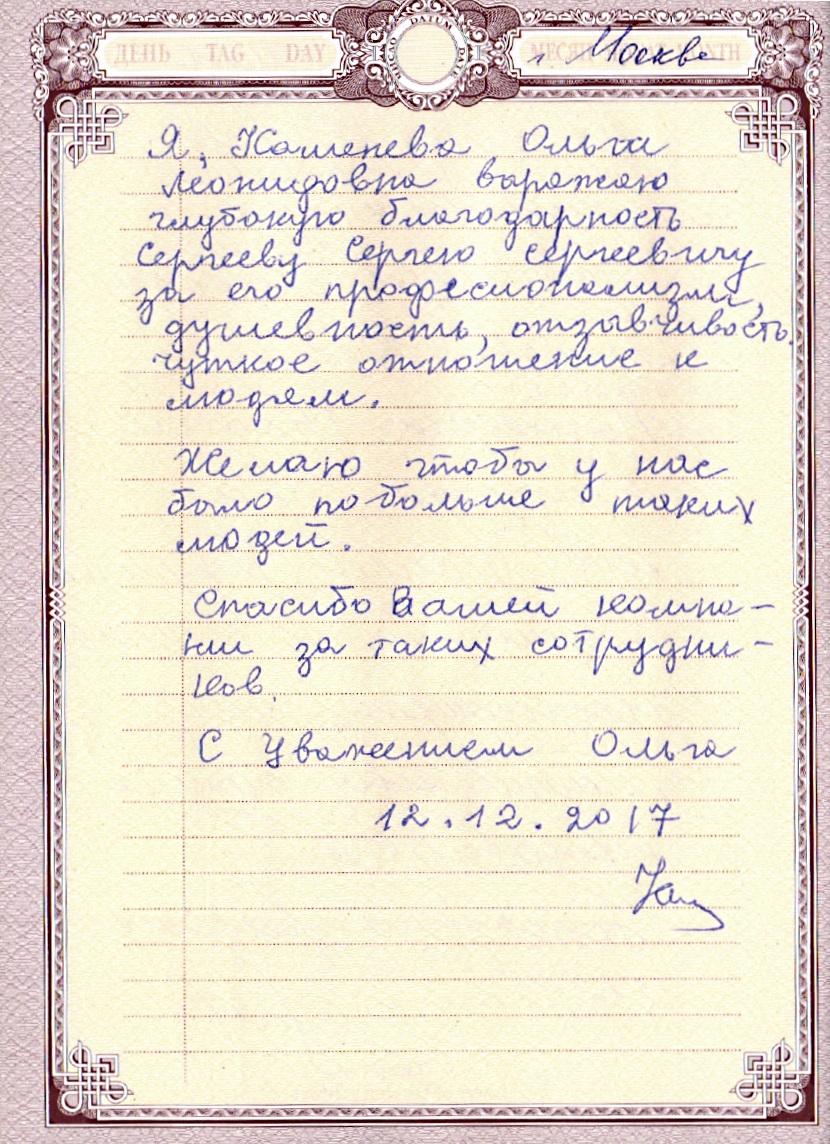 ДЕНЬ TAG DAY DATUM МЕСЯЦ MONTH
г. Москва
Я, Каменева Ольга
Леонидовна выражаю
глубокую благодарность
Сергееву Сергею Сергеевичу
за его професионализм,
душевность, отзывчивость.
чуткое отношение к
людям.
Желаю чтобы у нас
было побольше таких
людей.
Спасибо Вашей компа-
нии за таких сотрудни-
ков.
С Уважением Ольга
12.12.2017